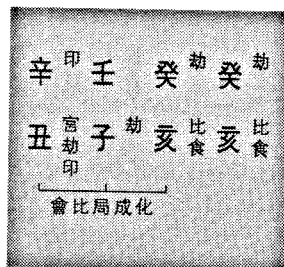 辛 印 壬 癸 劫 癸 劫
丑 官劫印 子 劫 亥 比食 亥 比食
會比局成化